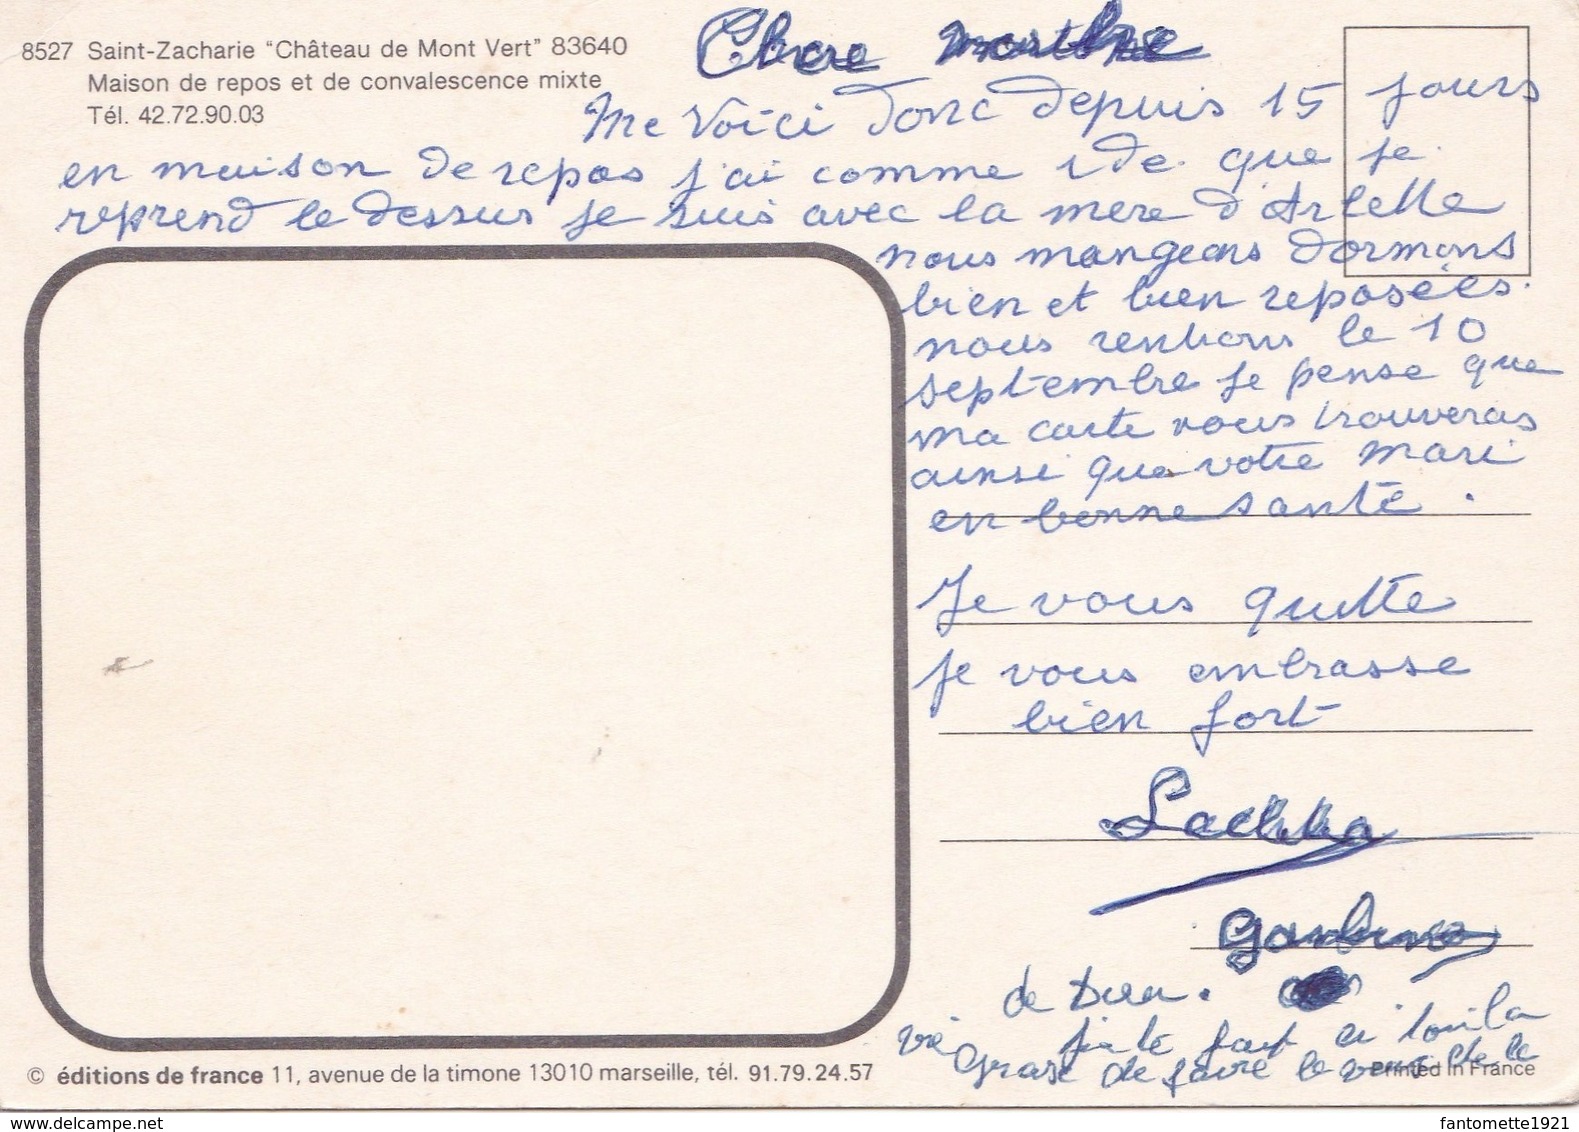 8527 Saint-Zacharie "Château de Mont Vert" 83640
Maison de repos et de convalescence mixte
Tél. 42.72.90.03
Chere marthe
Me Voici donc depuis 15 jours
en maison de repos j'ai comme ide. que je
reprend le dessus je suis avec la mere d'Arlette
nous mangeons dormons
bien et bien reposées.
nous rentrons le 10
septembre je pense que
ma carte vous trouveras
ainsi que votre mari
en bonne santé.
Je vous quitte
je vous embrasse
bien fort
de
fait
de faire le
© éditions de france 11, avenue de la timone 13010 marseille, tél. 91.79.24.57
Printed in France
fantomette1921
delcampe.net